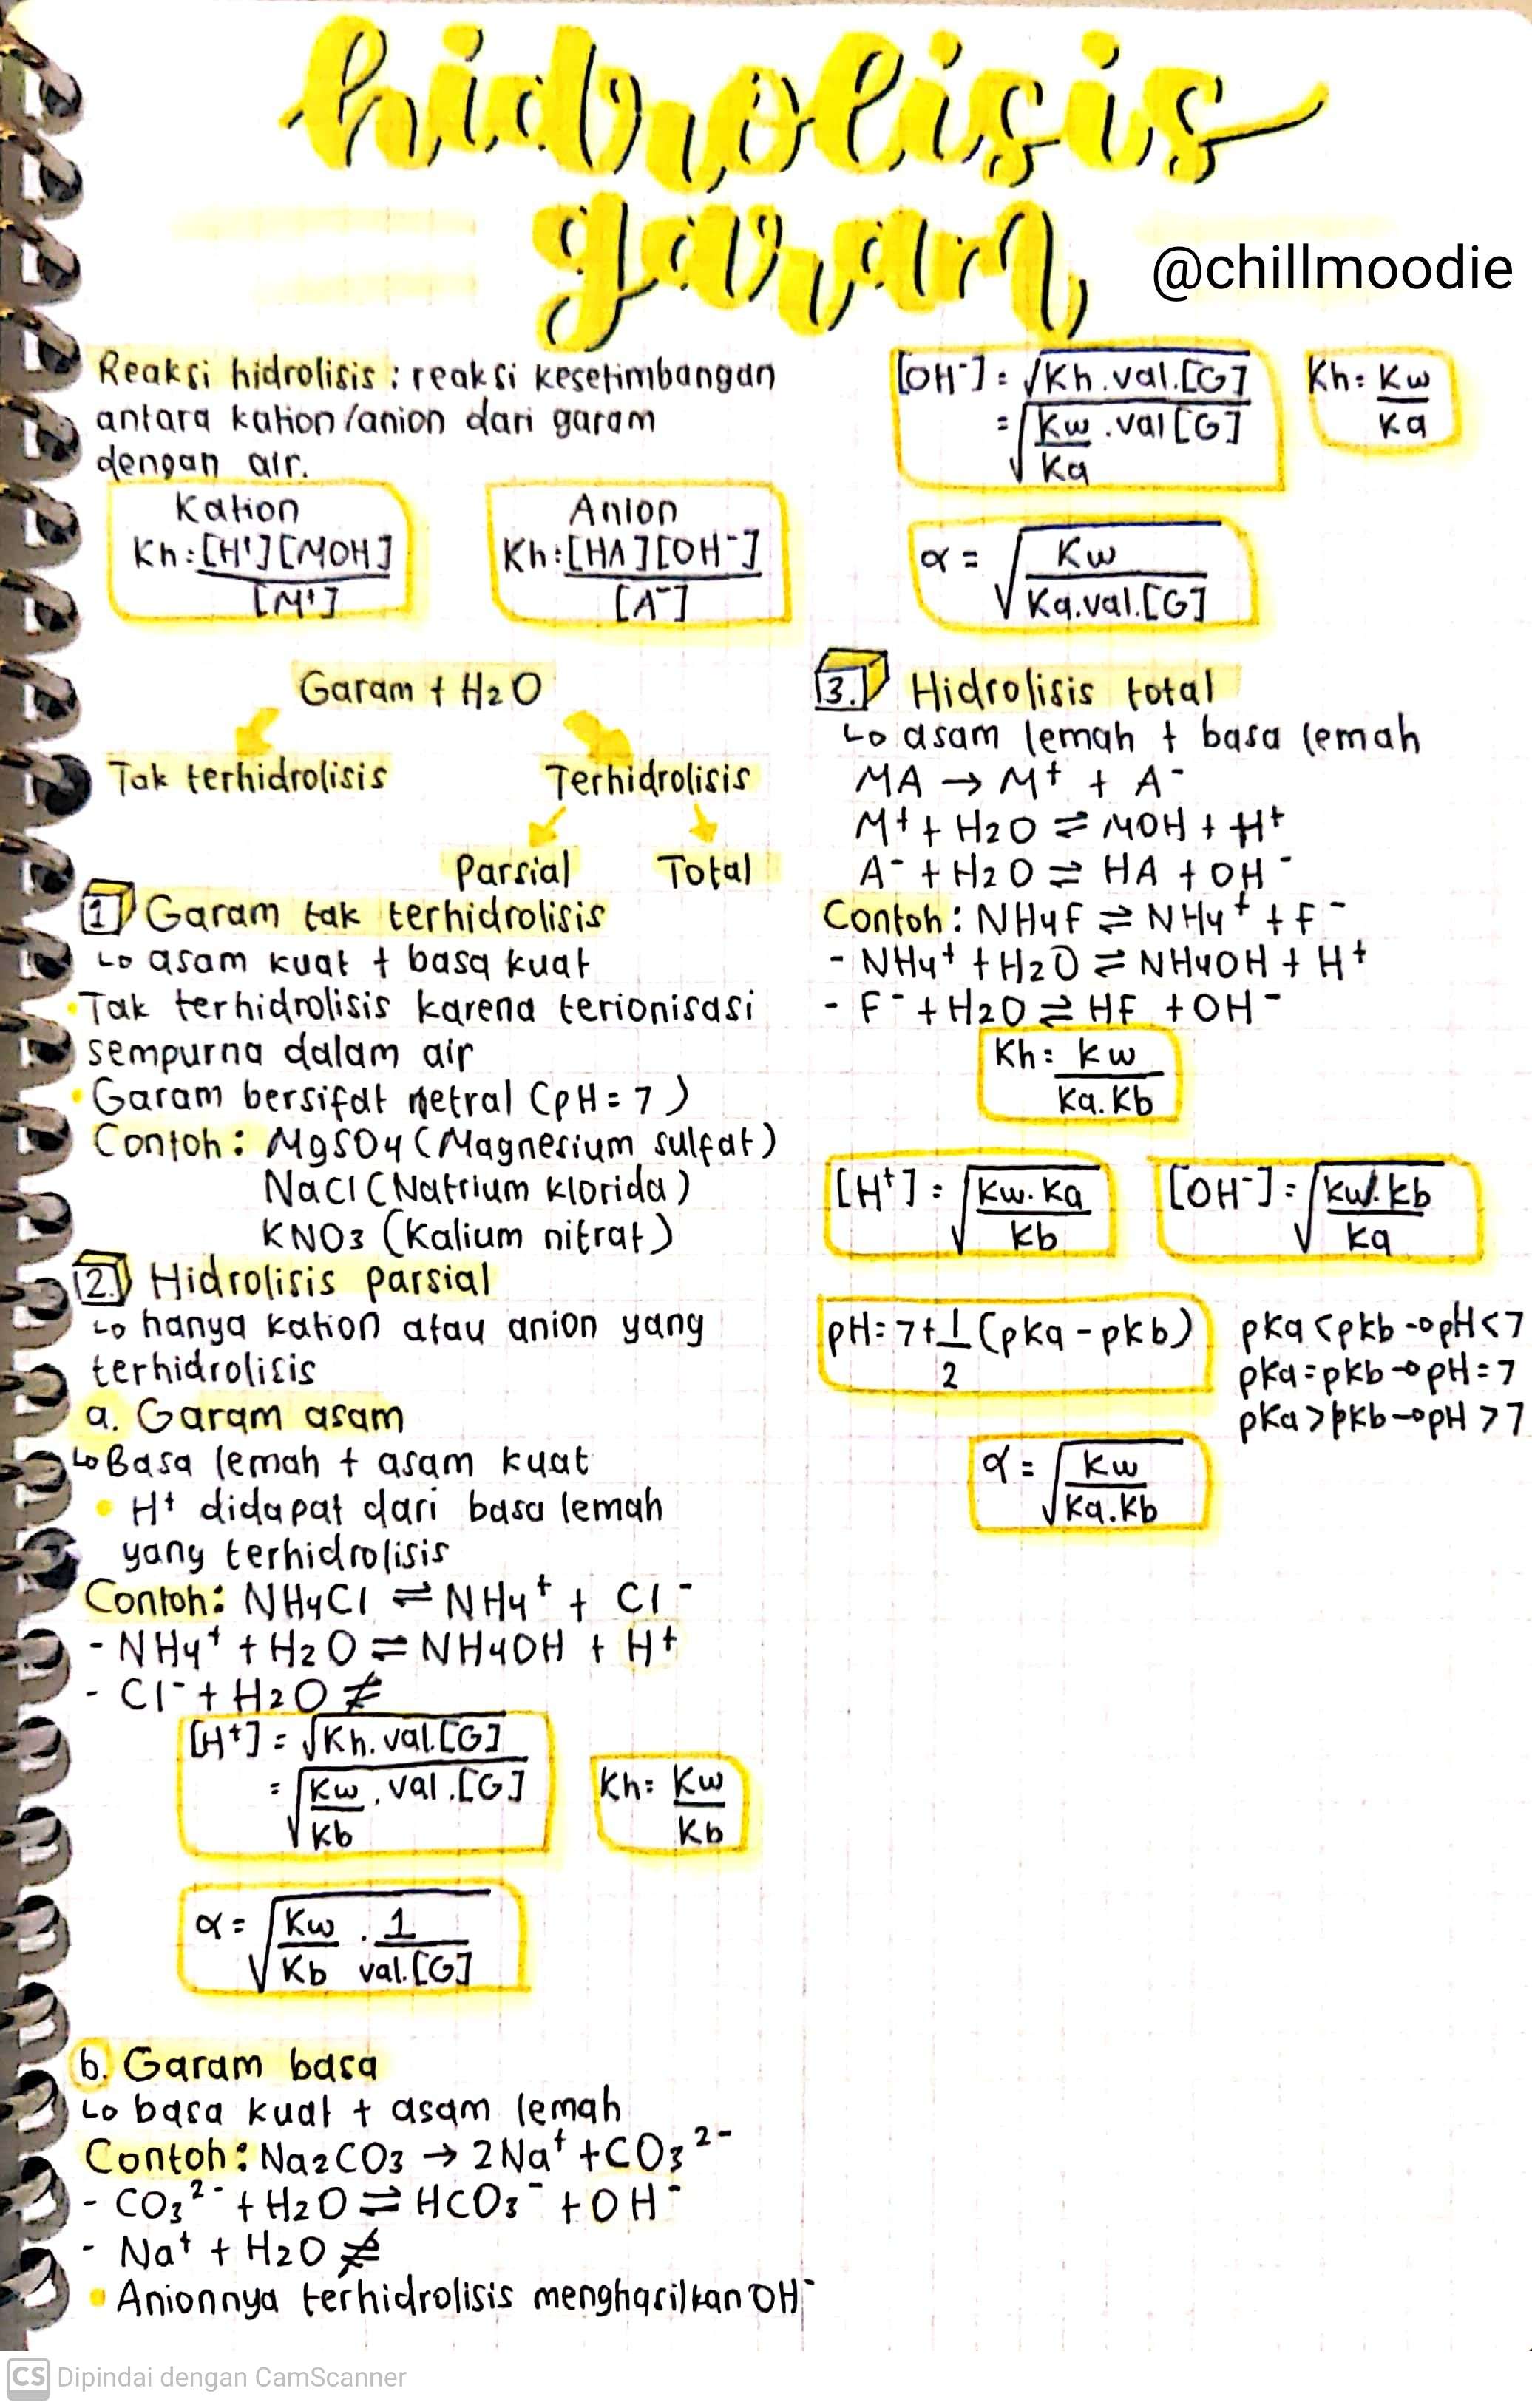 hidrolisis
garam
@chillmoodie
Reaksi hidrolisis : reaksi kesetimbangan
antara kation/anion dari garam
dengan air.
Kation
Kh = [H⁺][MOH]
[M⁺]
Anion
Kh = [HA][OH⁻]
[A⁻]
Garam + H2O
Tak terhidrolisis
Terhidrolisis
Parsial
Total
1 Garam tak terhidrolisis
↳ asam kuat + basa kuat
• Tak terhidrolisis karena terionisasi
sempurna dalam air
• Garam bersifat netral (pH = 7)
Contoh : MgSO4 (Magnesium sulfat)
NaCl (Natrium klorida)
KNO3 (Kalium nitrat)
2. Hidrolisis parsial
↳ hanya kation atau anion yang
terhidrolisis
a. Garam asam
↳ Basa lemah + asam kuat
• H⁺ didapat dari basa lemah
yang terhidrolisis
Contoh : NH4Cl ⇌ NH4⁺ + Cl⁻
- NH4⁺ + H2O ⇌ NH4OH + H⁺
- Cl⁻ + H2O ⇌̸
[H⁺] = √Kh. val.[G]
= √Kw . val .[G]
Kb
Kh = Kw
Kb
α = √Kw . 1
Kb val.[G]
b. Garam basa
↳ basa kuat + asam lemah
Contoh : Na2CO3 → 2Na⁺ + CO3²⁻
- CO3²⁻ + H2O ⇌ HCO3⁻ + OH⁻
- Na⁺ + H2O ⇌̸
• Anionnya terhidrolisis menghasilkan OH⁻
[OH⁻] = √Kh . val.[G]
= √Kw . val [G]
Ka
Kh = Kw
Ka
α = √Kw
Ka.val.[G]
3. Hidrolisis total
↳ asam lemah + basa lemah
MA → M⁺ + A⁻
M⁺ + H2O ⇌ MOH + H⁺
A⁻ + H2O ⇌ HA + OH⁻
Contoh : NH4F ⇌ NH4⁺ + F⁻
- NH4⁺ + H2O ⇌ NH4OH + H⁺
- F⁻ + H2O ⇌ HF + OH⁻
Kh = Kw
Ka. Kb
[H⁺] = √Kw. Ka
Kb
[OH⁻] = √Kw. Kb
Ka
pH = 7 + 1 (pKa - pKb)
2
pKa < pKb → pH < 7
pKa = pKb → pH = 7
pKa > pKb → pH > 7
α = √Kw
Ka. Kb
CS Dipindai dengan CamScanner